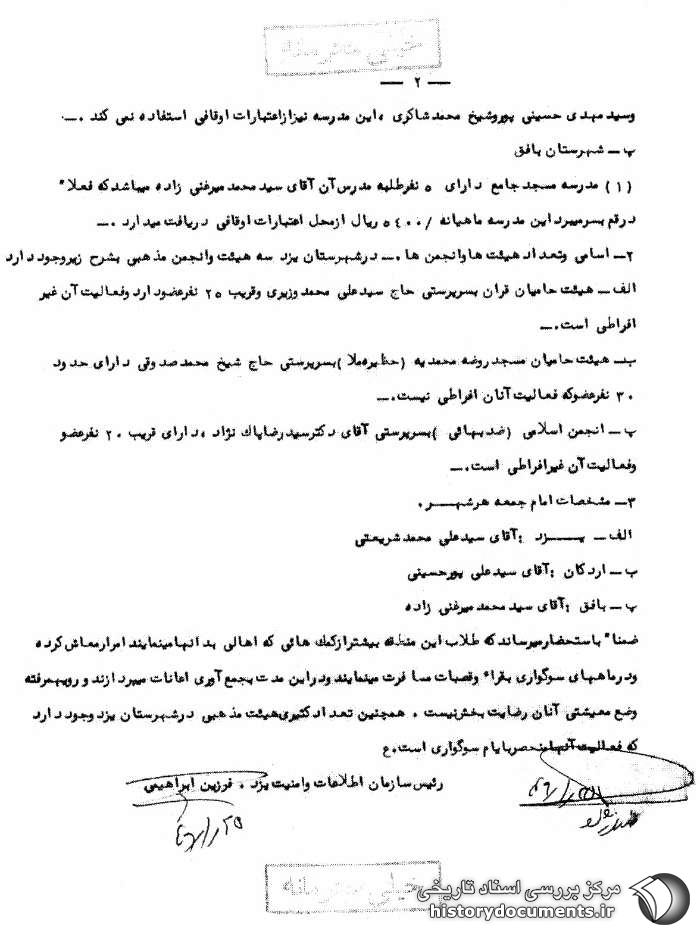 خیلی محرمانه
— ۲ —
وسید مهدی حسینی پور وشیخ محمد شاکری ، این مدرسه نیز از اعتبارات اوقافی استفاده نمی کند .ـ
پ ـ شهرستان بافق
(۱) مدرسه مسجد جامع دارای ۵ نفر طلبه مدرس آن آقای سید محمد میرغنی زاده میباشد که فعلا"
در قم بسر میبرد این مدرسه ماهیانه /۵۴۰۰ ریال از محل اعتبارات اوقافی دریافت میدارد .ـ
۲ـ اسامی وتعداد هیئت ها وانجمن ها .ـ در شهرستان یزد سه هیئت وانجمن مذهبی بشرح زیر وجود دارد
الف ـ هیئت حامیان قران بسرپرستی حاج سید علی محمد وزیری وقریب ۲۵ نفر عضو دارد وفعالیت آن غیر
افراطی است .ـ
ب ـ هیئت حامیان مسجد روضه محمدیه (حظیره ملا) بسرپرستی حاج شیخ محمد صدوقی دارای حدود
۳۰ نفر عضو که فعالیت آنان افراطی نیست .ـ
پ ـ انجمن اسلامی (ضد بهائی) بسرپرستی آقای دکتر سید رضا پاك نژاد ، دارای قریب ۲۰ نفر عضو
وفعالیت آن غیر افراطی است .ـ
۳ـ مشخصات امام جمعه هر شهر .
الف ـ یزد : آقای سید علی محمد شریعتی
ب ـ اردکان : آقای سید علی پور حسینی
پ ـ بافق : آقای سید محمد میرغنی زاده
ضمنا" باستحضار میرساند که طلاب این منطقه بیشتر از کمك هائی که اهالی بدانها مینمایند امرار معاش کرده
ودر ماههای سوگواری بقراء وقصبات مسافرت مینمایند ودر این مدت بجمع آوری اعانات میپردازند و رویهمرفته
وضع معیشتی آنان رضایت بخش نیست . همچنین تعداد کثیری هیئت مذهبی در شهرستان یزد وجود دارد
که فعالیت آنها منحصر بایام سوگواری است . ع
رئیس سازمان اطلاعات وامنیت یزد . فرزین ابراهیمی
خیلی محرمانه
مرکز بررسی اسناد تاریخی
historydocuments.ir